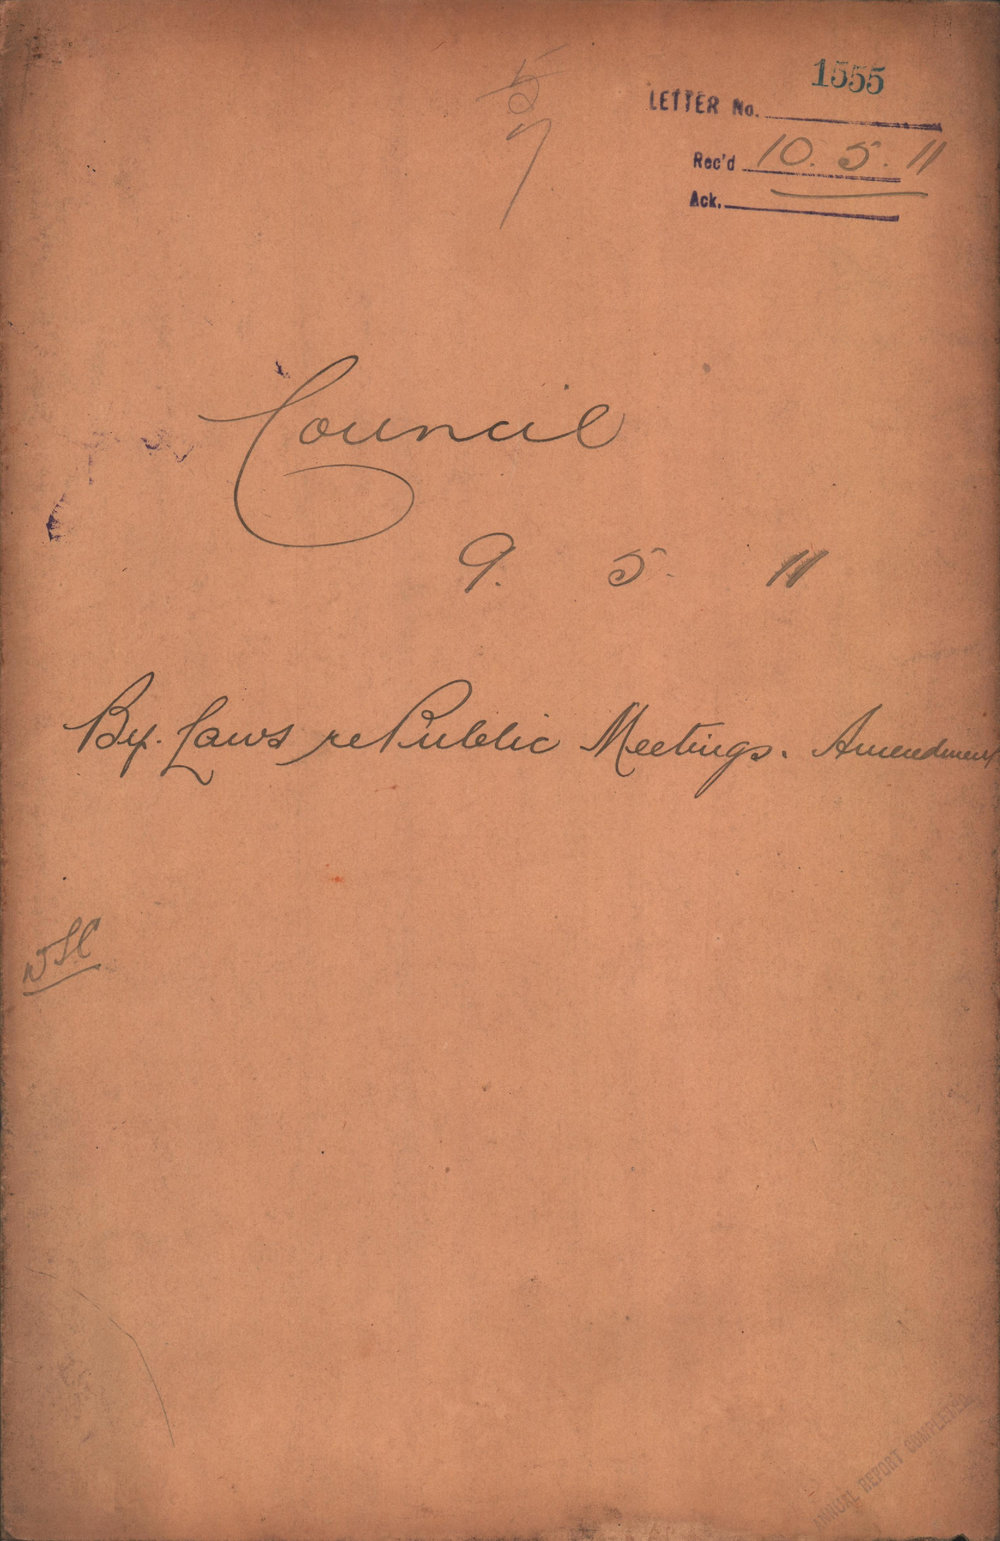 5
7
1555
LETTER No.
Rec'd 10.5.11
Ack.
Council
9. 5. 11
By. Laws re Public Meetings. Amendment
ANNUAL REPORT COMPLETED